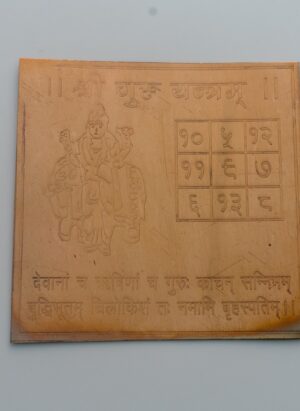 || श्री गुरु यन्त्रम् ||
१० ५ १२
११ ९ ७
६ १३ ८
देवानां च ऋषिणां च गुरुः कांचन् सन्निभम्
बुद्धिभूतम् त्रिलोकिशं तः नमामि बृहस्पतिम्।।